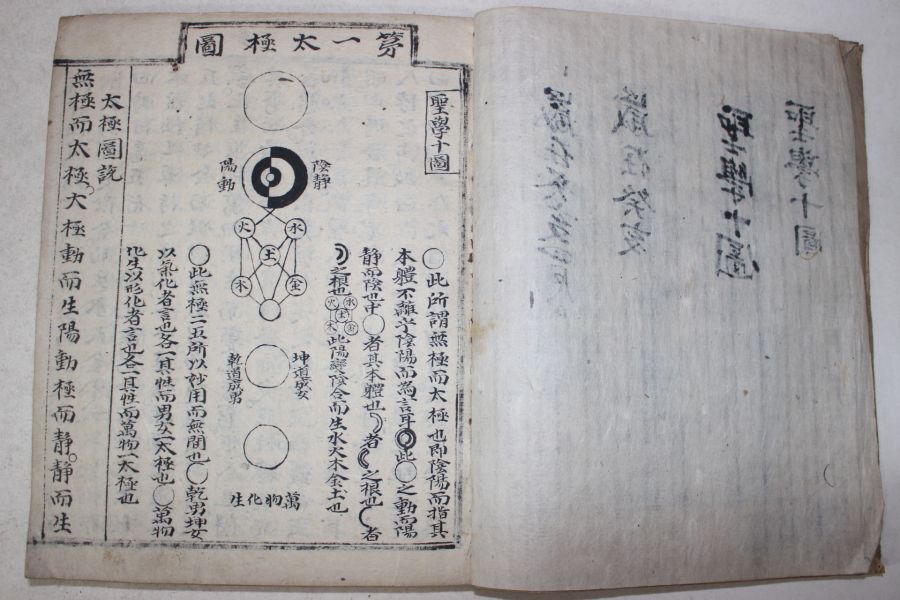 聖學十圖
聖學十圖
苐一太極圖
聖學十圖
陰静
陽動
火
水
土
木
金
坤道成女
乾道成男
萬物化生
◯此所謂無極而太極也即陰陽而指其
本軆不離乎陰陽而爲言耳此◯之動而陽
静而陰也中◯者其本軆也者之根也者
之根也水火土金木此陽變陰合而生水火木金土也
◯此無極二五所以妙用而無間也◯乾男坤女
以氣化者言也各一其性而男女一太極也◯萬物
化生以形化者言也各一其性而萬物一太極也
太極圖說
無極而太極。太極動而生陽動極而静。静而生